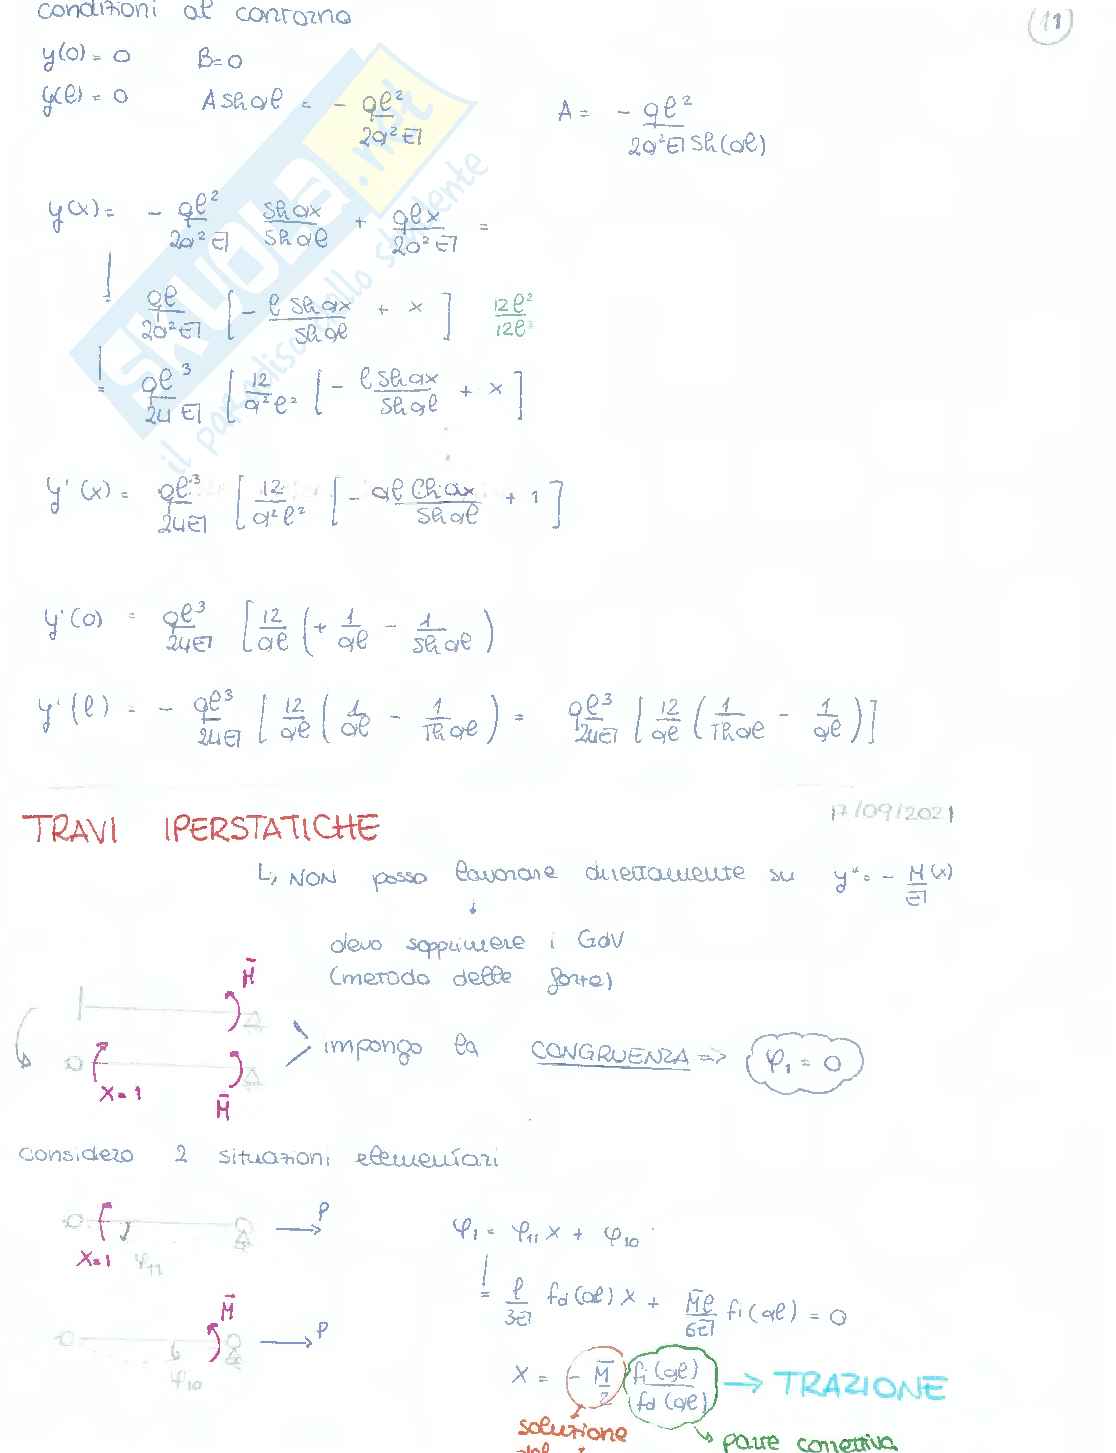 condizioni al contorno
(11)
y(0) = 0 B=0
y(l) = 0 A Sh al = - ql²/2a²EI A = - ql²/2a²EI Sh(al)
y(x) = - ql²/2a²EI Sh ax/Sh al + qlx/2a²EI =
ql/2a²EI [ - l Sh ax/Sh al + x ] 12l²/12l²
= ql³/24EI [ 12/a²l² [ - l Sh ax/Sh al + x ]
y'(x) = ql³/24EI [ 12/a²l² [ - al Ch ax/Sh al + 1 ]
y'(0) = ql³/24EI [ 12/al ( + 1/al - 1/Sh al )
y'(l) = - ql³/24EI [ 12/al ( 1/al - 1/Th al ) = ql³/24EI [ 12/al ( 1/Th al - 1/al ) ]
17/09/2021
TRAVI IPERSTATICHE
↳ NON posso lavorare direttamente su y'' = - M(x)/EI
↓
devo sopprimere i GdV
(metodo delle forze)
M̄
impongo la CONGRUENZA => φ₁ = 0
X=1 M̄
considero 2 situazioni elementari
P
X=1 φ₁₁
φ₁ = φ₁₁ X + φ₁₀
= l/3EI fd(al) X + M̄l/6EI fi(al) = 0
M̄
P
φ₁₀
X = - M̄/2 fi(al)/fd(al) → TRAZIONE
soluzione
del
parte correttiva
skuola.net
il paradiso dello studente